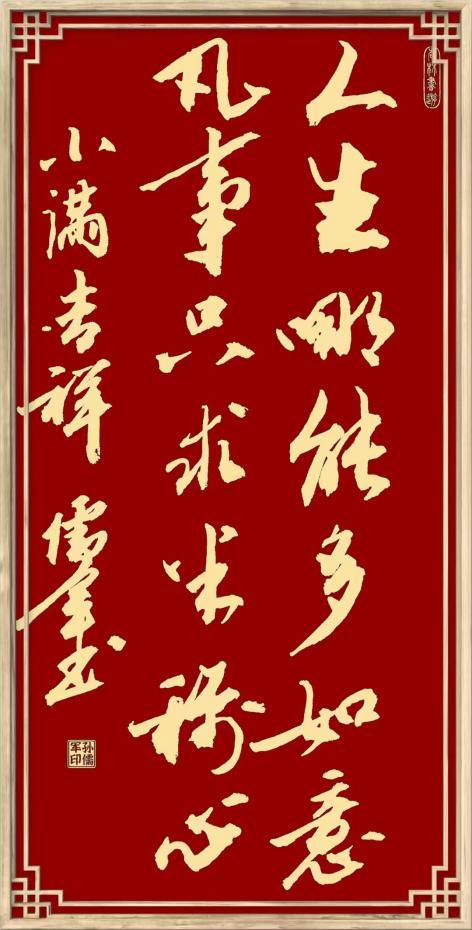 人生哪能多如意
凡事只求半称心
小满吉祥 儒军书
孙儒军印